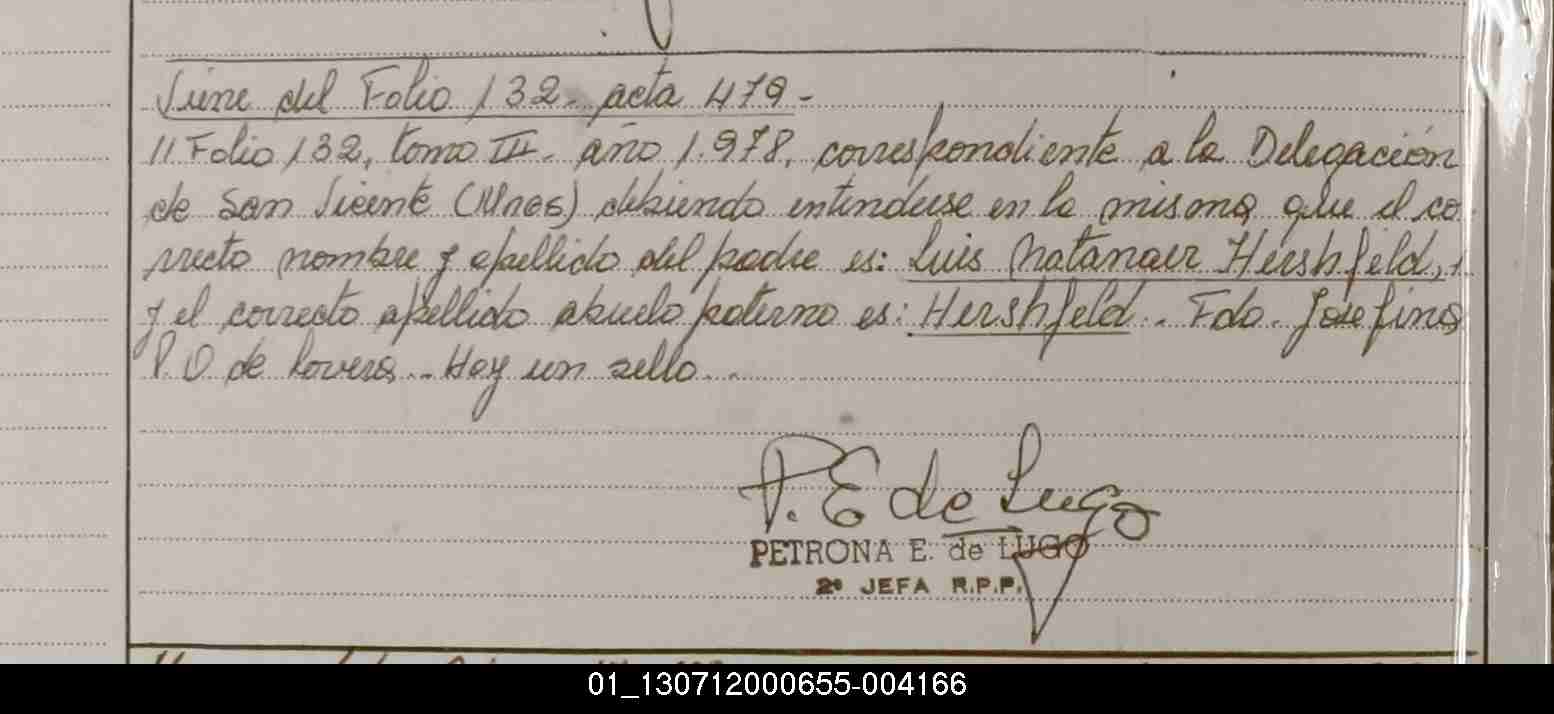 Viene del Folio 132 - acta 479 -
" Folio 132, tomo III - año 1.978, correspondiente a la Delegación
de San Vicente (Mnes) debiendo entenderse en la misma que el co
rrecto nombre y apellido del padre es: Luis Natanaer Hershfeld,
y el correcto apellido abuelo paterno es: Hershfeld. Fdo. Josefina
P. O de Lovera - Hay un sello -
P. E de Lugo
PETRONA E. de LUGO
2ª JEFA R.P.P.
01_130712000655-004166